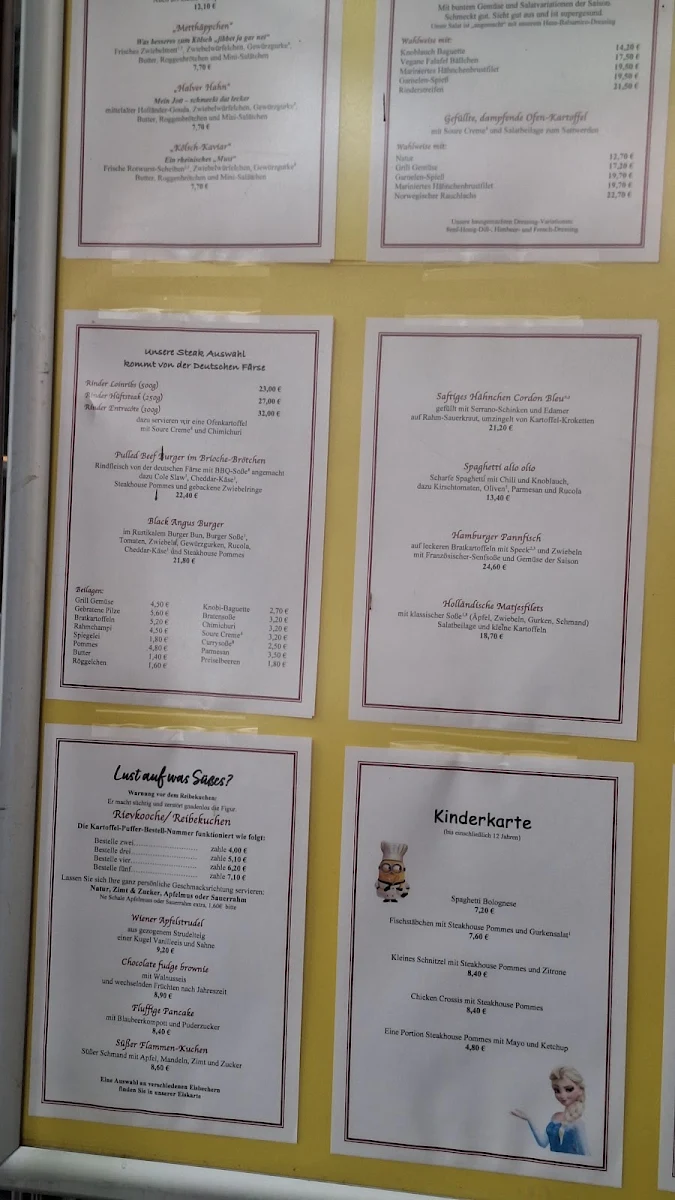 12,10 €
„Metthäppchen"
Was besseres zum Kölsch „jibbet ja gar net"
Frisches Zwiebelmett, Zwiebelwürfelchen, Gewürzgurke,
Butter, Roggenbrötchen und Mini-Salätchen
7,70 €
„Halver Hahn"
Mein Jott - schmeckt dat lecker
mittelalter Holländer-Gouda, Zwiebelwürfelchen, Gewürzgurke,
Butter, Roggenbrötchen und Mini-Salätchen
7,70 €
„Kölsch-Kaviar"
Ein rheinisches „Muss"
Frische Rotwurst-Scheiben, Zwiebelwürfelchen, Gewürzgurke
Butter, Roggenbrötchen und Mini-Salätchen
7,70 €
Mit buntem Gemüse und Salatvariationen der Saison.
Schmeckt gut. Sieht gut aus und ist supergesund.
Unser Salat ist „angemacht" mit unserem Haus-Balsamico-Dressing
Wahlweise mit:
Knoblauch Baguette 14,20 €
Vegane Falafel Bällchen 17,50 €
Mariniertes Hähnchenbrustfilet 19,50 €
Garnelen-Spieß 19,50 €
Rinderstreifen 21,50 €
Gefüllte, dampfende Ofen-Kartoffel
mit Soure Creme und Salatbeilage zum Sattwerden
Wahlweise mit:
Natur 12,70 €
Grill Gemüse 17,20 €
Garnelen-Spieß 19,70 €
Mariniertes Hähnchenbrustfilet 19,70 €
Norwegischer Rauchlachs 22,70 €
Unsere hausgemachten Dressing-Variationen:
Senf-Honig-Dill-, Himbeer- und French-Dressing
Unsere Steak Auswahl
kommt von der Deutschen Färse
Rinder Lointrito (500g) 23,00 €
Rinder Hüftsteak (250g) 27,00 €
Rinder Entrecote (300g) 32,00 €
dazu servieren wir eine Ofenkartoffel
mit Soure Creme und Chimichuri
Pulled Beef Burger im Brioche-Brötchen
Rindfleisch von der deutschen Färse mit BBQ-Soße angemacht
dazu Cole Slaw, Cheddar-Käse,
Steakhouse Pommes und gebackene Zwiebelringe
22,40 €
Black Angus Burger
im Rustikalem Burger Bun, Burger Soße,
Tomaten, Zwiebeln, Gewürzgurken, Rucola,
Cheddar-Käse und Steakhouse Pommes
21,80 €
Beilagen:
Grill Gemüse 4,50 €
Gebratene Pilze 5,60 €
Bratkartoffeln 5,20 €
Rahmchampi 4,50 €
Spiegelei 1,80 €
Pommes 4,80 €
Butter 1,40 €
Röggelchen 1,60 €
Knobi-Baguette 2,70 €
Bratensoße 3,20 €
Chimichuri 3,20 €
Soure Creme 3,20 €
Currysoße 2,50 €
Parmesan 3,50 €
Preiselbeeren 1,80 €
Saftiges Hähnchen Cordon Bleu
gefüllt mit Serrano-Schinken und Edamer
auf Rahm-Sauerkraut, umzingelt von Kartoffel-Kroketten
21,20 €
Spaghetti allo olio
Scharfe Spaghetti mit Chili und Knoblauch,
dazu Kirschtomaten, Oliven, Parmesan und Rucola
13,40 €
Hamburger Pannfisch
auf leckeren Bratkartoffeln mit Speck und Zwiebeln
mit Französischer-Senfsoße und Gemüse der Saison
24,60 €
Holländische Matjesfilets
mit klassischer Soße (Äpfel, Zwiebeln, Gurken, Schmand)
Salatbeilage und kleine Kartoffeln
18,70 €
Lust auf was Süßes?
Warnung vor dem Reibekuchen:
Er macht süchtig und zerstört gnadenlos die Figur
Rievkooche/ Reibekuchen
Die Kartoffel-Puffer-Bestell-Nummer funktioniert wie folgt:
Bestelle zwei.................... zahle 4,00 €
Bestelle drei.................... zahle 5,10 €
Bestelle vier.................... zahle 6,20 €
Bestelle fünf.................... zahle 7,10 €
Lassen Sie sich Ihre ganz persönliche Geschmacksrichtung servieren:
Natur, Zimt & Zucker, Apfelmus oder Sauerrahm
Ne Schale Apfelmus oder Sauerrahm extra, 1,60€ bitte
Wiener Apfelstrudel
aus gezogenem Strudelteig
einer Kugel Vanilleeis und Sahne
9,20 €
Chocolate fudge brownie
mit Walnusseis
und wechselnden Früchten nach Jahreszeit
8,90 €
Fluffige Pancake
mit Blaubeerkompott und Puderzucker
8,40 €
Süßer Flammen-Kuchen
Süßer Schmand mit Apfel, Mandeln, Zimt und Zucker
8,60 €
Eine Auswahl an verschiedenen Eisbechern
finden Sie in unserer Eiskarte
Kinderkarte
(bis einschließlich 12 Jahren)
Spaghetti Bolognese
7,20 €
Fischstäbchen mit Steakhouse Pommes und Gurkensalat
7,60 €
Kleines Schnitzel mit Steakhouse Pommes und Zitrone
8,40 €
Chicken Crossis mit Steakhouse Pommes
8,40 €
Eine Portion Steakhouse Pommes mit Mayo und Ketchup
4,80 €